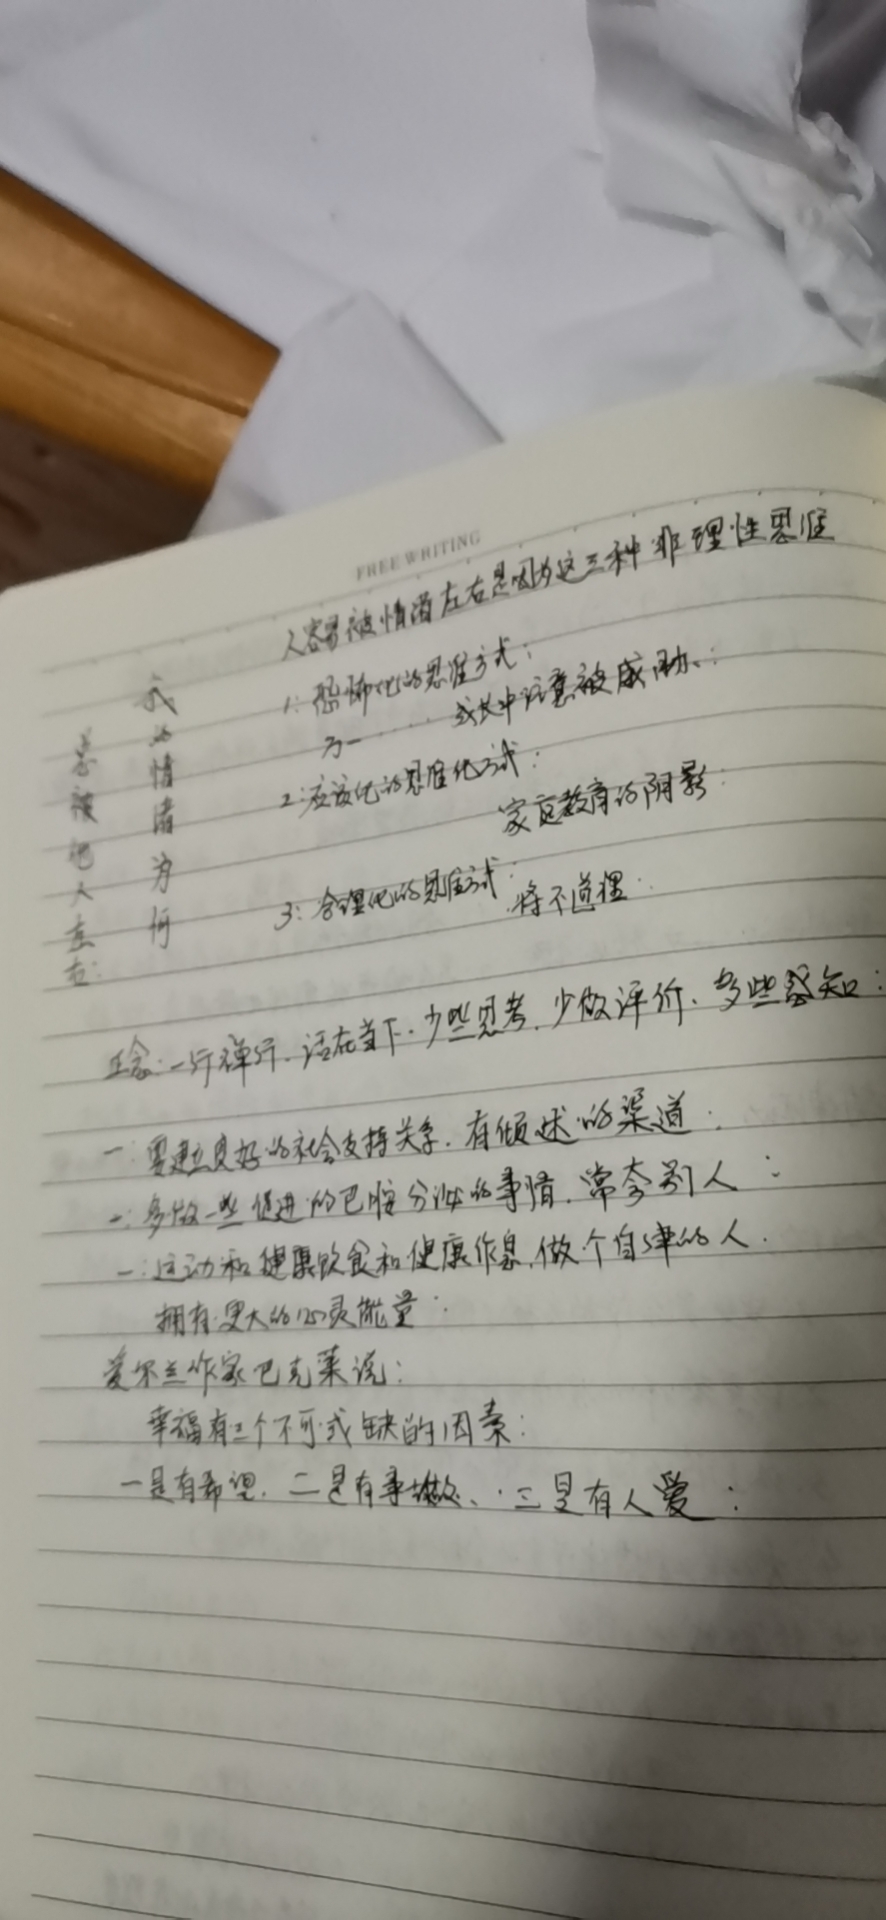 FREE WRITING
人容易被情绪左右是因为这三种非理性思维
我的情绪为何
总被他人左右:
1: 恐怖化的思维方式:
万一······ 成长中注意被威胁、:
2: 应该化的思维化方式:
家庭教育的阴影:
3: 合理化的思维方式:
将不道理:
正念: 一行禅行、活在当下、少些思考、少做评价、多些感知:
一: 要建立良好的社会支持关系、有倾述的渠道:
一: 多做一些促进的巴胺分泌的事情、常夸别人:
一: 运动和健康饮食和健康作息、做个自律的人.
拥有更大的心灵能量:
爱尔兰作家巴克莱说:
幸福有三个不可或缺的因素:
一是有希望、二是有事做、三是有人爱: